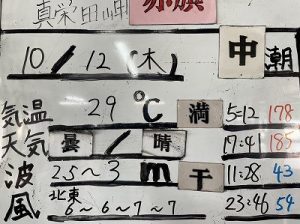 真栄田岬 赤旗
10/12(木) 中潮
気温 29℃ 満 5:12 178
天気 曇/晴 17:4 185
波 2.5~3m 干 11:28 43
風 北東 6~6~7~7 23:46 54